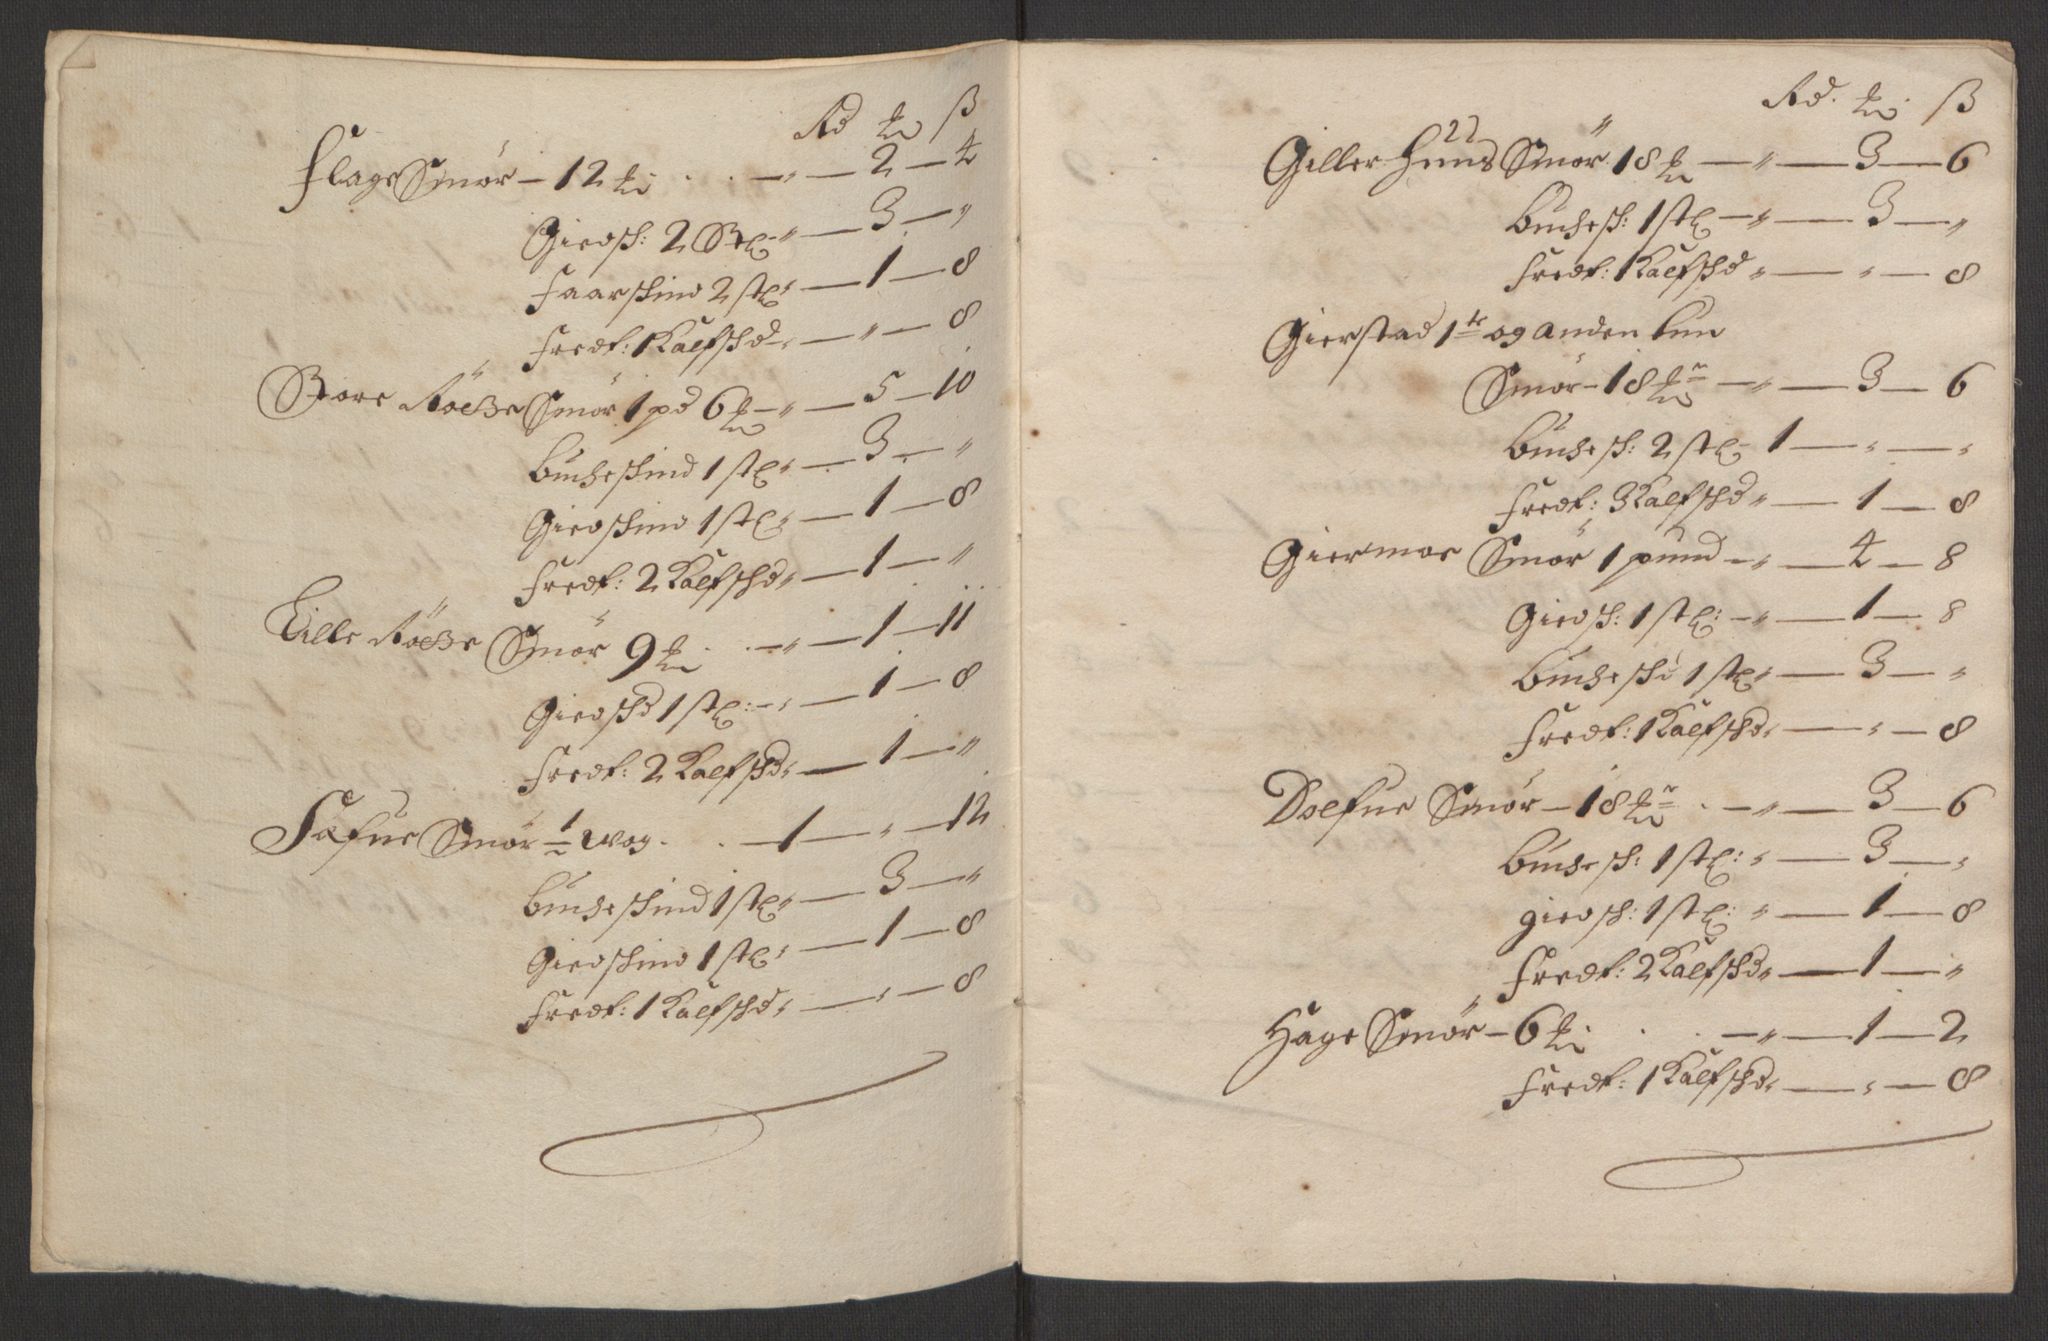 Rd ℔ ß
Flage Smör – 12 ℔ . . – „ – 2 – 4
Giedsk: 2 Stk – „ – 3 – „
Faarskind 2 stk „ – 1 – 8
Fredk: 1 Kalfskd – „ – „ – 8
Store Röesze Smör 1 pd 6 ℔ – „ – 5 – 10
Buckeskind 1 stk „ – 3 – „
Giedskind 1 stk „ – 1 – 8
Fredk: 2 Kalfskd „ – 1 – „
Lille Röesze Smör 9 ℔ . . – „ – 1 – 11
Giedskd 1 stk: – „ – 1 – 8
Fredk: 2 Kalfskd „ – 1 – „
Smör – 1 wog . . – 1 – „ – 12
Buckeskind 1 stk „ – 3 – „
Giedskind 1 stk „ – 1 – 8
Fredk: 1 Kalfskd „ – „ – 8
Rd. ℔. ß
Giller Huus Smör 18 ℔ – „ – 3 – 6
Buckesk: 1 stk – „ – 3 – „
Fredk: 1 Kalfskd „ – „ – 8
Gierstad 1te og anden kun
Smör – 18 ℔r – „ – 3 – 6
Buckesk: 2 stk 1 – „ – „
Fredk: 3 Kalfskd „ – 1 – 8
Giermoe Smör 1 pund – „ – 4 – 8
Giedsk: 1 stk: – „ – 1 – 8
Buckeskd 1 stk „ – 3 – „
Fredk: 1 Kalfskd „ – „ – 8
Dolfue Smör – 18 ℔r . – „ – 3 – 6
Buckesk: 1 stk: „ – 3 – „
giedsk: 1 stk: „ – 1 – 8
Fredk: 2 Kalfskd „ – 1 – „
Hage Smör – 6 ℔ . . . – „ – 1 – 2
Fredk: 1 Kalfskd „ – „ – 8